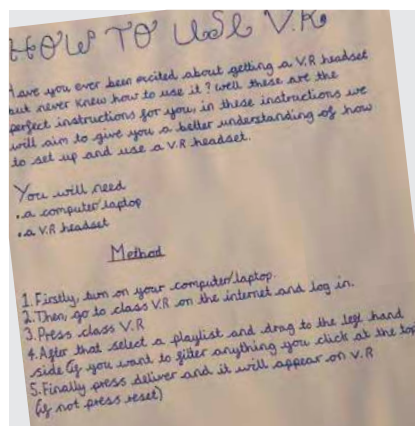 HOW TO USE V.R
Have you ever been excited about getting a V.R headset
but never knew how to use it? well these are the
perfect instructions for you, in these instructions we
will aim to give you a better understanding of how
to set up and use a V.R headset.
You will need
•a computer/laptop
•a V.R headset
Method
1. Firstly, turn on your computer/laptop.
2. Then, go to class V.R on the internet and log in.
3. Press class V.R
4. After that select a playlist and drag to the left hand
side (if you want to filter anything you click at the top
5. Finally press deliver and it will appear on V.R
(if not press reset)